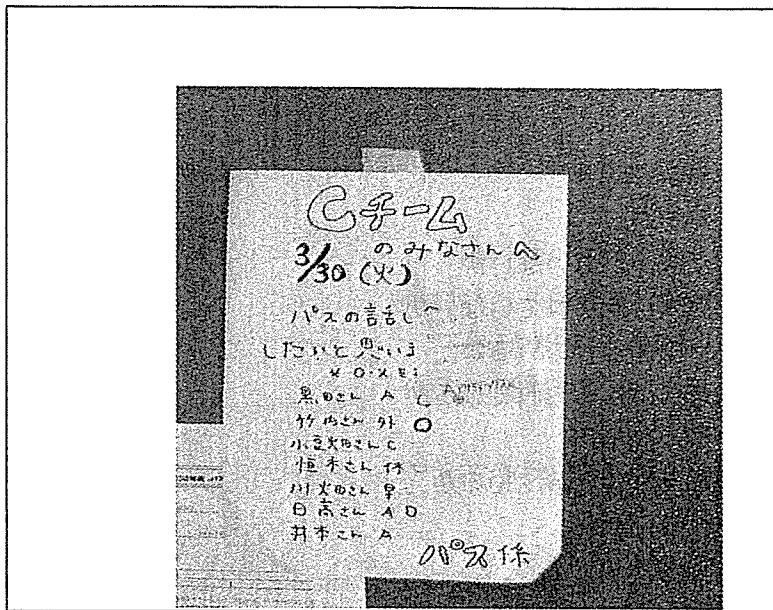 Cチーム
のみなさんへ
3/30 (火)
パスの話し
したいと思いま
黒田さん A
竹内さん 外 O
小豆畑さん C
恒木さん 休
川畑さん 早
日高さん A O
井本さん A
パス係